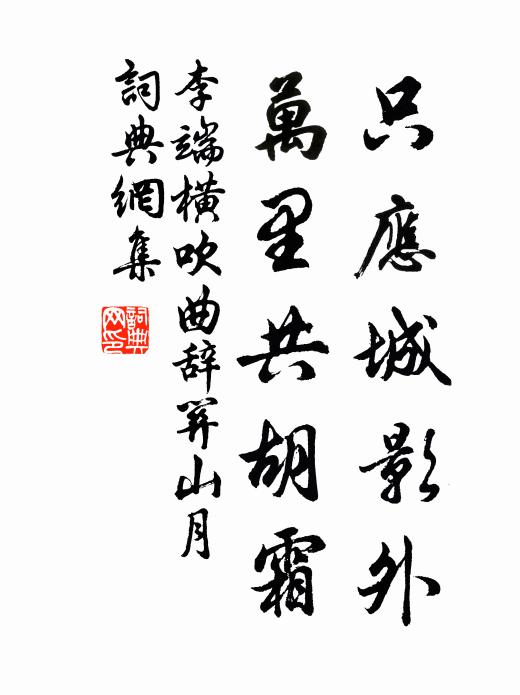 只應城影外
萬里共胡霜
李端橫吹曲辭關山月
詞典網集
詞典网印